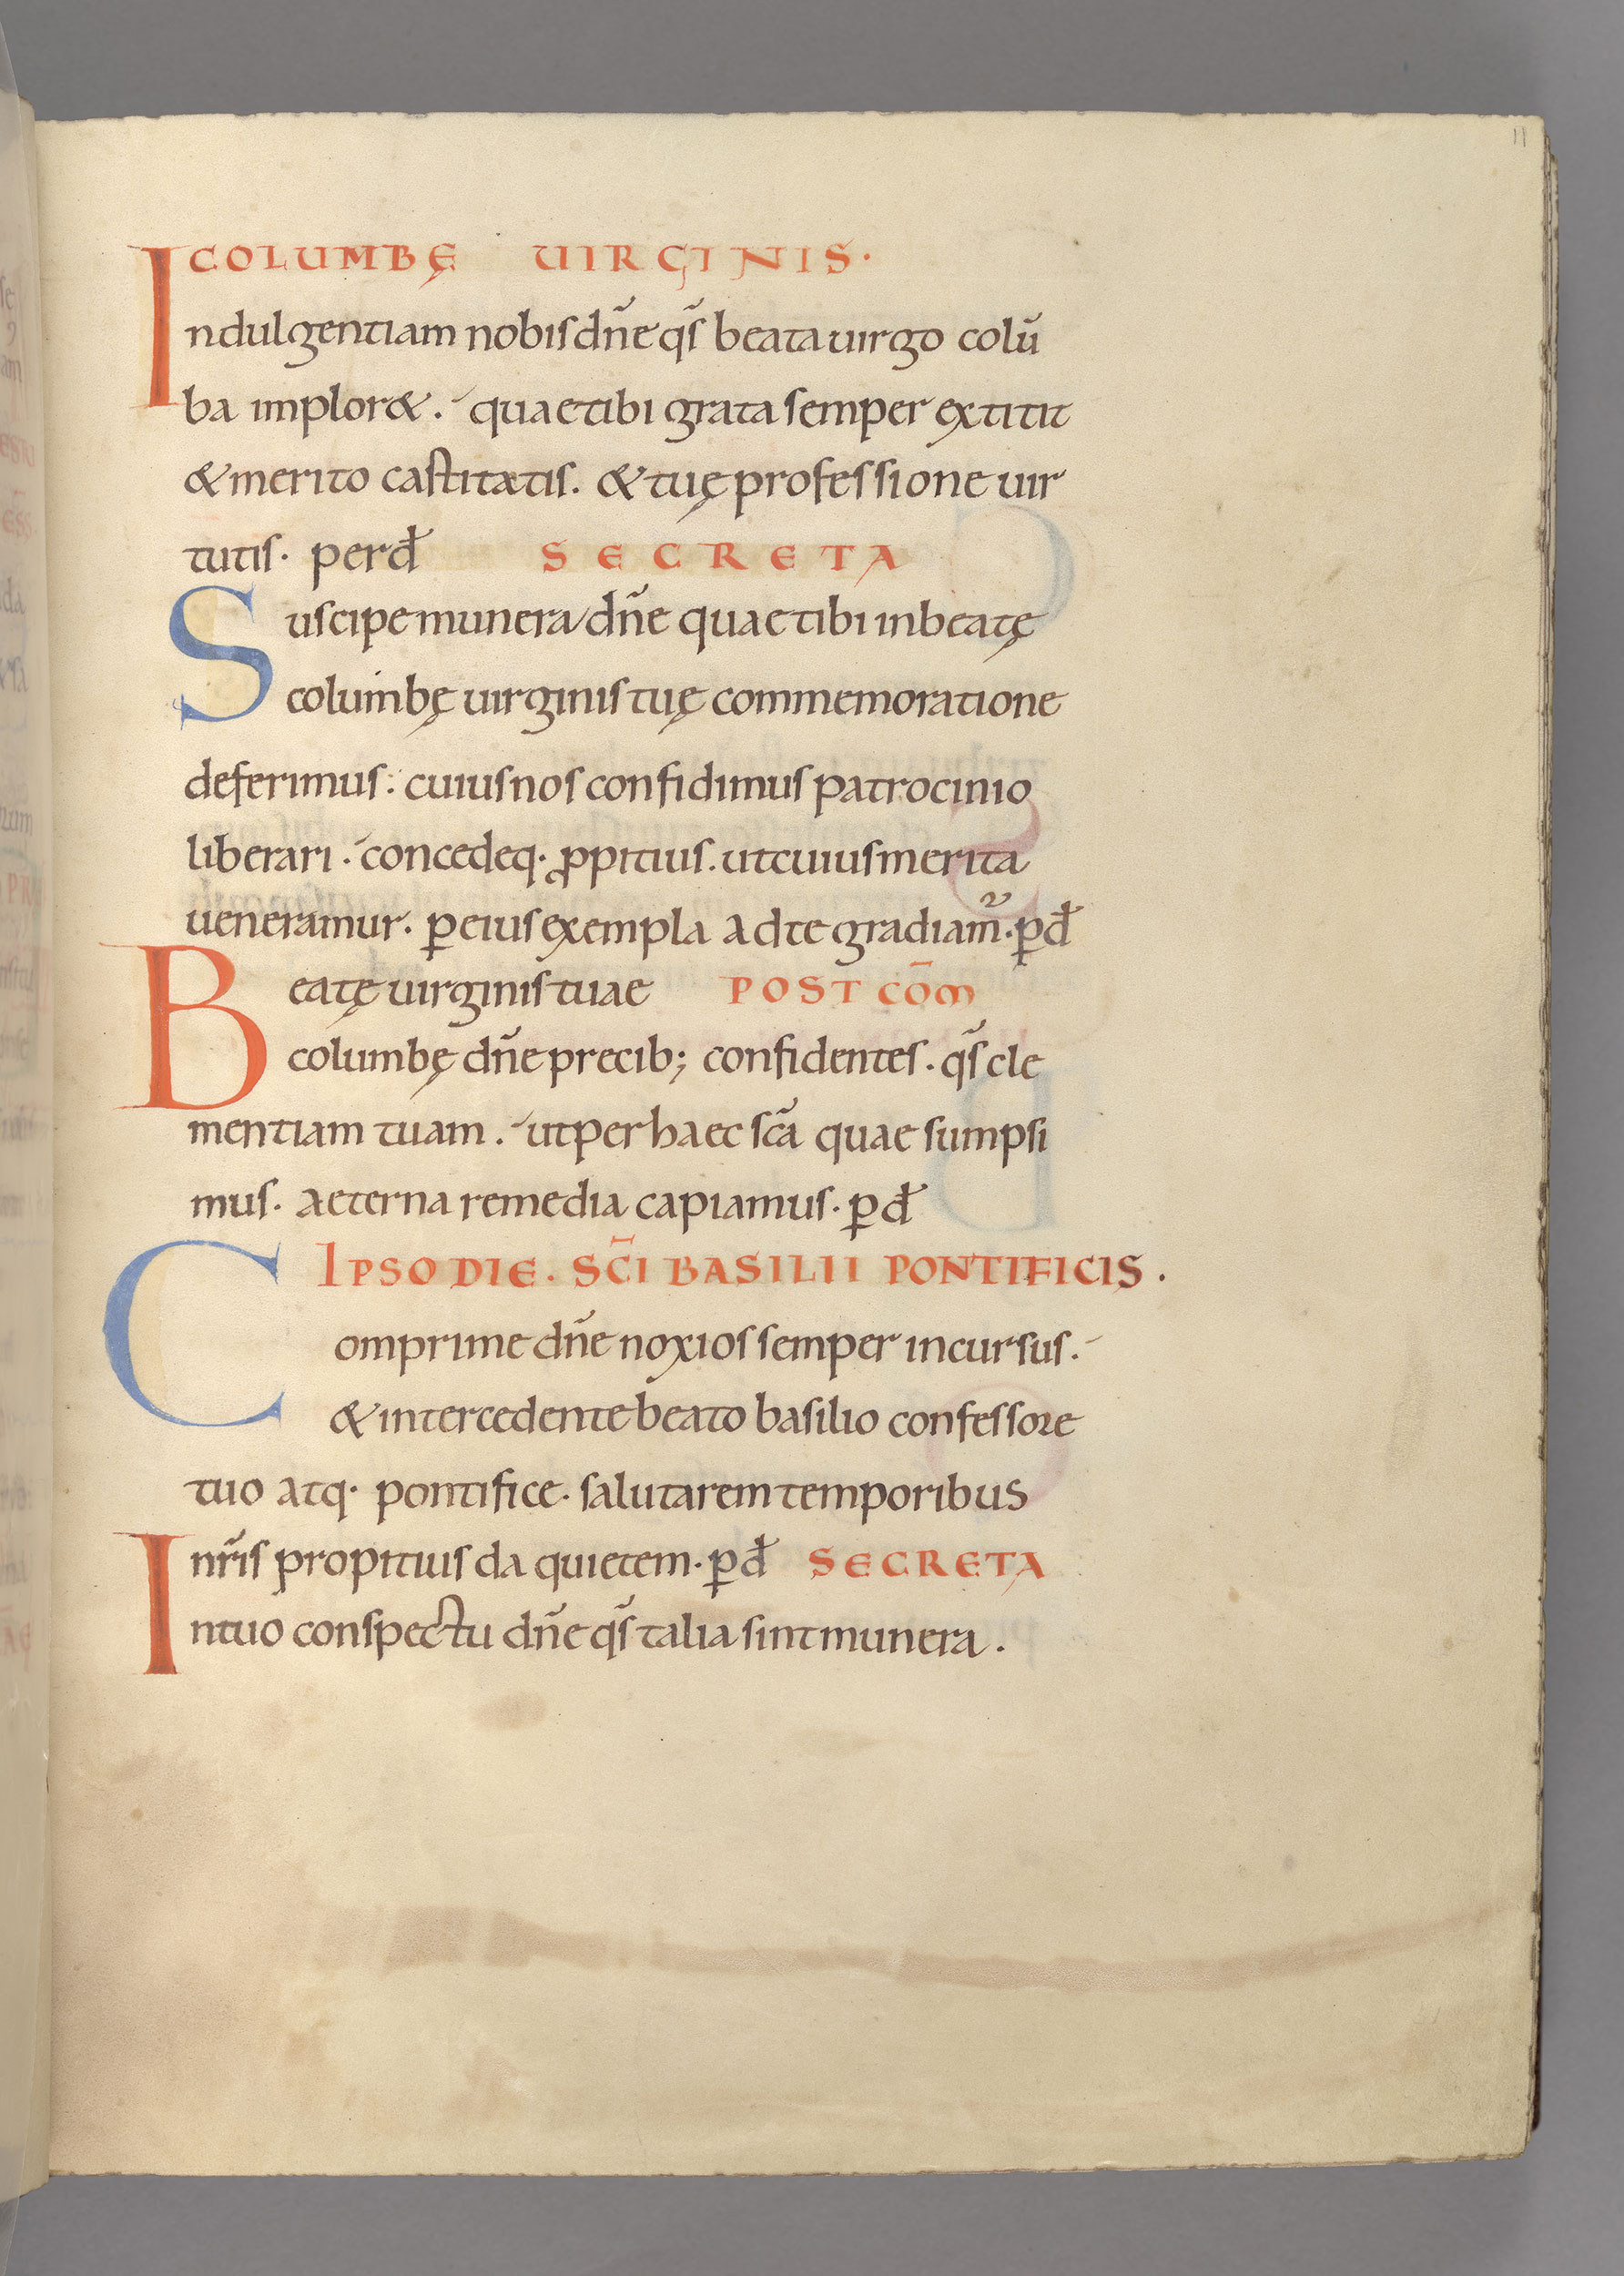 11
COLUMBĘ UIRGINIS·
Indulgentiam nobis dn̄e qs̄ beata uirgo colū
ba implor&. quae tibi grata semper extitit
& merito castitatis. & tuę professione uir
tutis· per dƚ SECRETA
Suscipe munera dn̄e quae tibi in beatę
columbę uirginis tuę commemoratione
deferimus: cuius nos confidimus patrocinio
liberari· concede q· ꝓpitius. ut cuius merita
ueneramur. ꝑ eius exempla ad te gradiam̄·ꝑ dƚ
Beatę uirginis tuae POST COM̄
columbę dn̄e precib; confidentes. qs̄ cle
mentiam tuam. ut per haec sc̄a quae sumpsi
mus. aeterna remedia capiamus·ꝑ dƚ
IPSO DIE. SC̄I BASILII PONTIFICIS.
Comprime dn̄e noxios semper incursus.
& intercedente beato basilio confessore
tuo atq· pontifice· salutarem temporibus
nr̄is propitius da quietem·ꝑ dƚ SECRETA
In tuo conspectu dn̄e qs̄ talia sint munera.